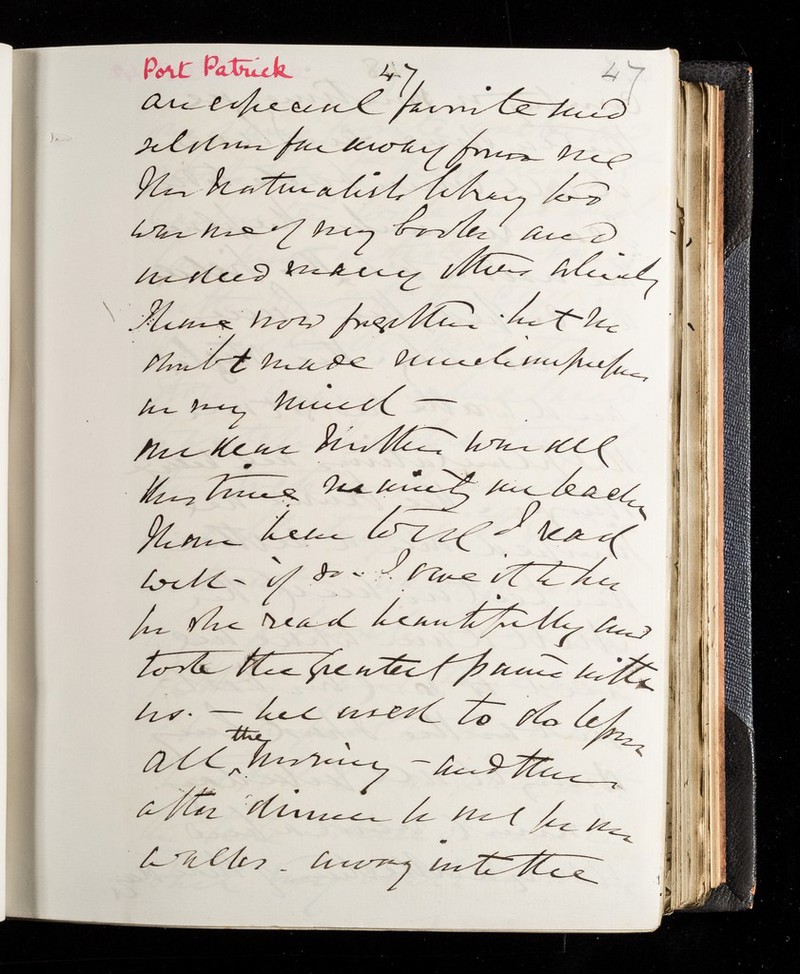 Port Patrick 47 47
an especial favorite and
seldom far away from me
The Naturalists library too
was one of my books and
indeed many others which
I have now forgotten but no
doubt made much impression
on my mind —
our dear Mother was all
this time mainly our teacher
I have been told I read
well - if so - I owe it to her
for she read beautifully and
took the greatest pains with
us. — we used to do lessons
all the morning — and then
after dinner be out for our
walks - away into the